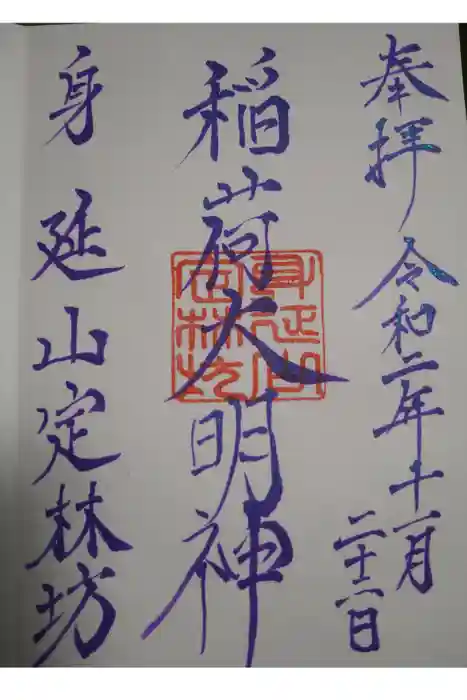 奉拝 令和二年十一月
二十六日
稲荷大明神
身延山定林坊
身延山
定林坊